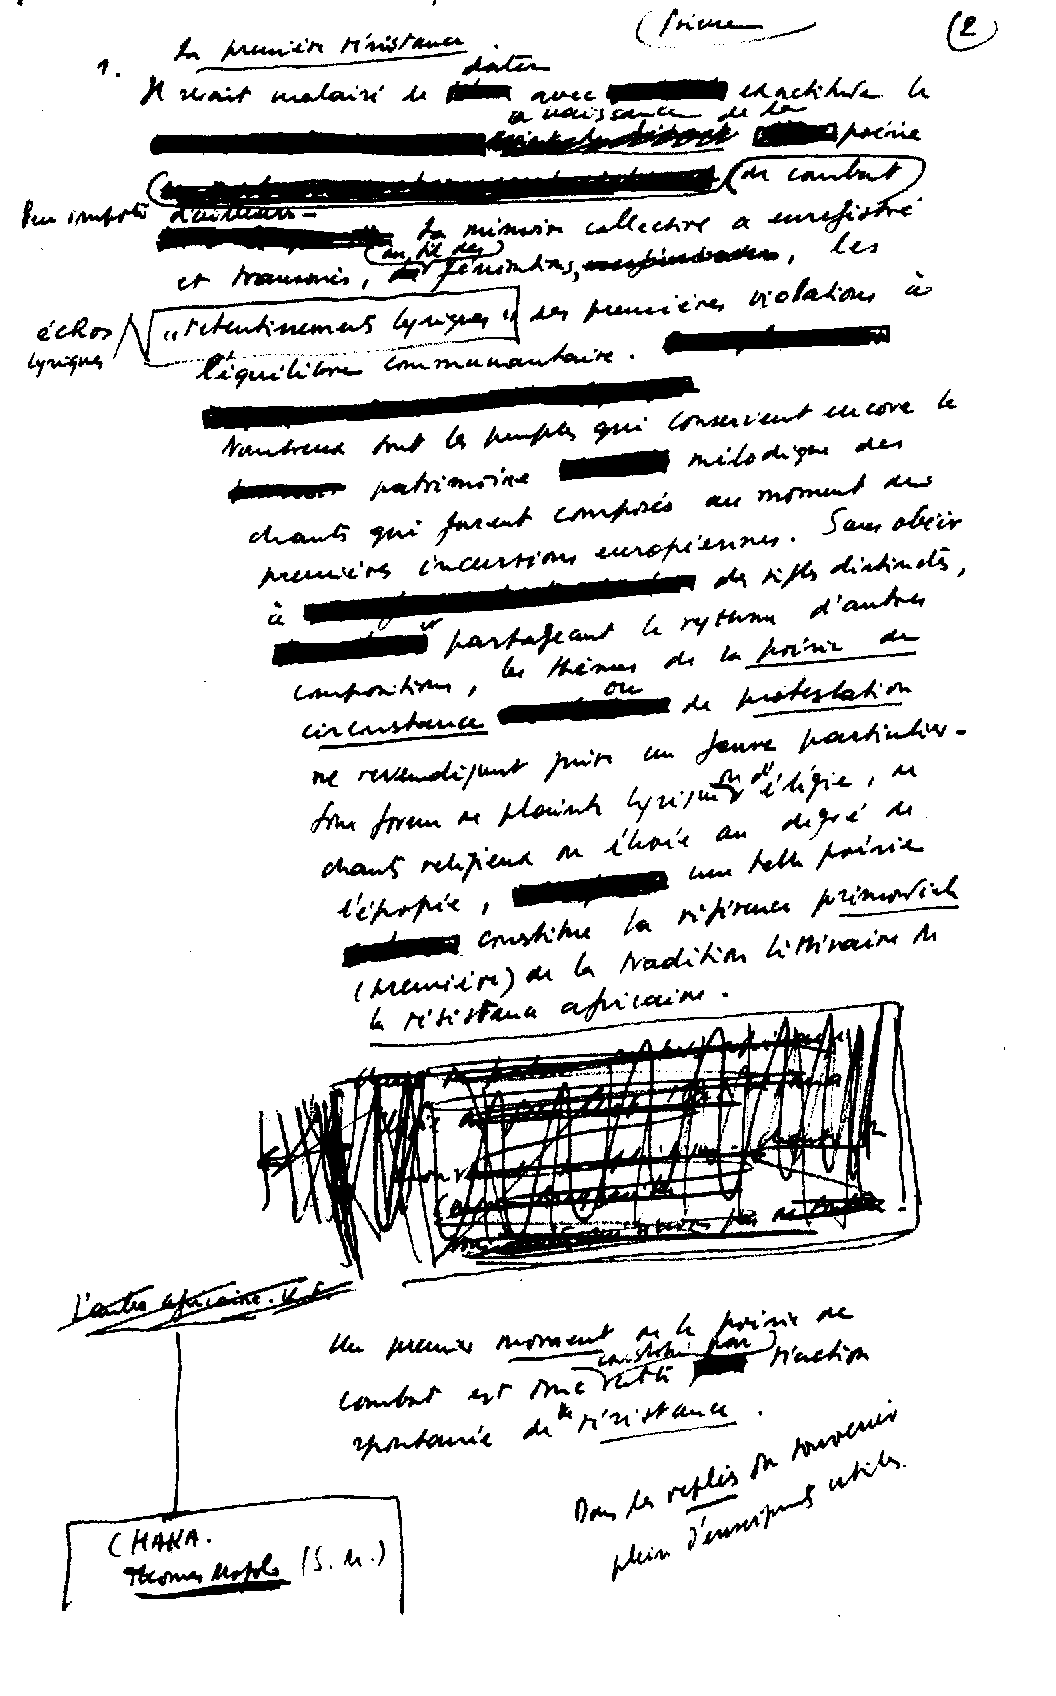 (2)
1. La première résistance.
Il serait malaisé de dater avec exactitude la
naissance de la poésie
(de combat)
Peu importe d'ailleurs - La mémoire collective a enregistré
et transmis, au fil des générations, les
échos lyriques "retentissements lyriques" des premières violations à
l'équilibre communautaire.
Nombreux sont les peuples qui conservent encore le
patrimoine mélodique des
chants qui furent composés au moment des
premières incursions européennes. Sans obéir
à des règles distinctes,
et partageant le rythme d'autres
compositions, les thèmes de la poésie de
circonstance ou de protestation
ne revendiquent guère un genre particulier.
Sous forme de plainte lyrique ou d'élégie, de
chants religieux ou élevée au degré de
l'épopée, une telle poésie
constitue la référence primordiale
(première) de la tradition littéraire de
la résistance africaine.
L'autre africaine.
Un premier moment de la poésie de
combat est donc constitué par cette réaction
spontanée de résistance.
Dans les replis du souvenir
plein d'enseignements utiles.
CHAKA.
Thomas Mofolo (S. M.)